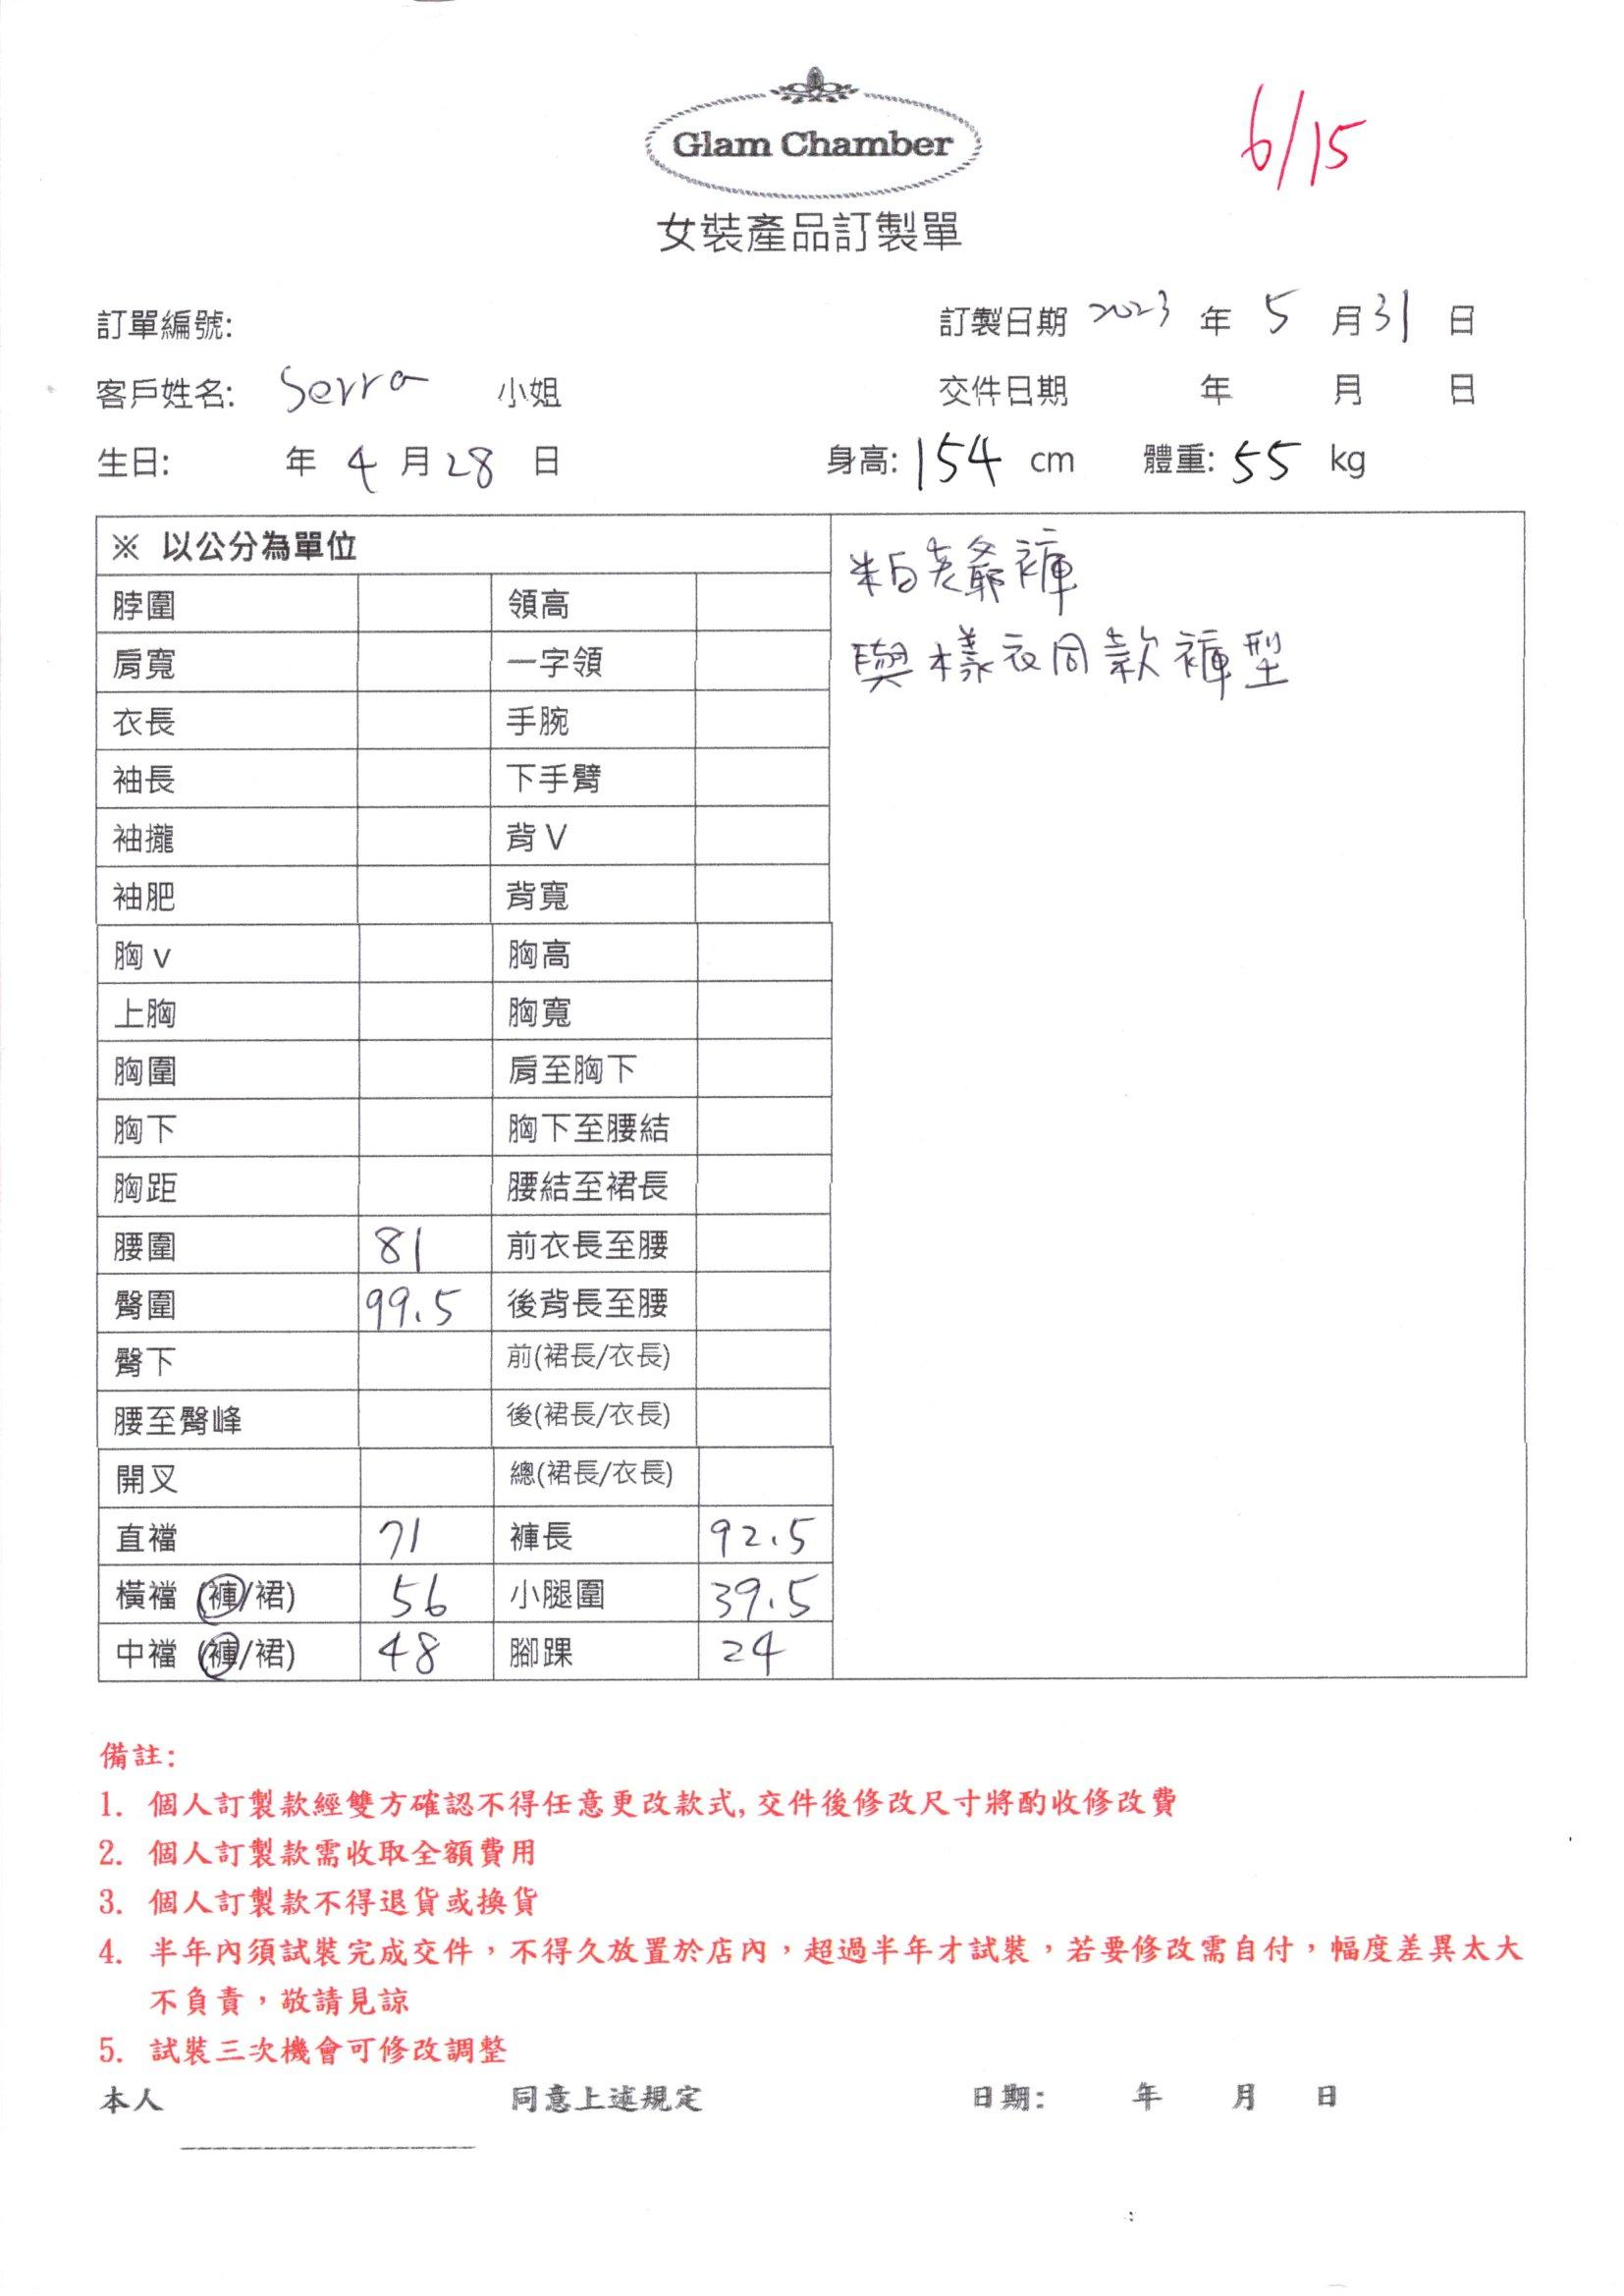 Glam Chamber
6/15
女裝產品訂製單
訂單編號: 訂製日期 2023 年 5 月 31 日
客戶姓名: Serra 小姐 交件日期 年 月 日
生日: 年 4 月 28 日 身高: 154 cm 體重: 55 kg
※ 以公分為單位
粕老爺褲
與樣衣同款褲型
脖圍 領高
肩寬 一字領
衣長 手腕
袖長 下手臂
袖攏 背V
袖肥 背寬
胸v 胸高
上胸 胸寬
胸圍 肩至胸下
胸下 胸下至腰結
胸距 腰結至裙長
腰圍 81 前衣長至腰
臀圍 99.5 後背長至腰
臀下 前(裙長/衣長)
腰至臀峰 後(裙長/衣長)
開叉 總(裙長/衣長)
直襠 71 褲長 92.5
橫襠 (褲/裙) 56 小腿圍 39.5
中襠 (褲/裙) 48 腳踝 24
備註:
1. 個人訂製款經雙方確認不得任意更改款式,交件後修改尺寸將酌收修改費
2. 個人訂製款需收取全額費用
3. 個人訂製款不得退貨或換貨
4. 半年內須試裝完成交件，不得久放置於店內，超過半年才試裝，若要修改需自付，幅度差異太大
不負責，敬請見諒
5. 試裝三次機會可修改調整
本人 同意上述規定 日期: 年 月 日